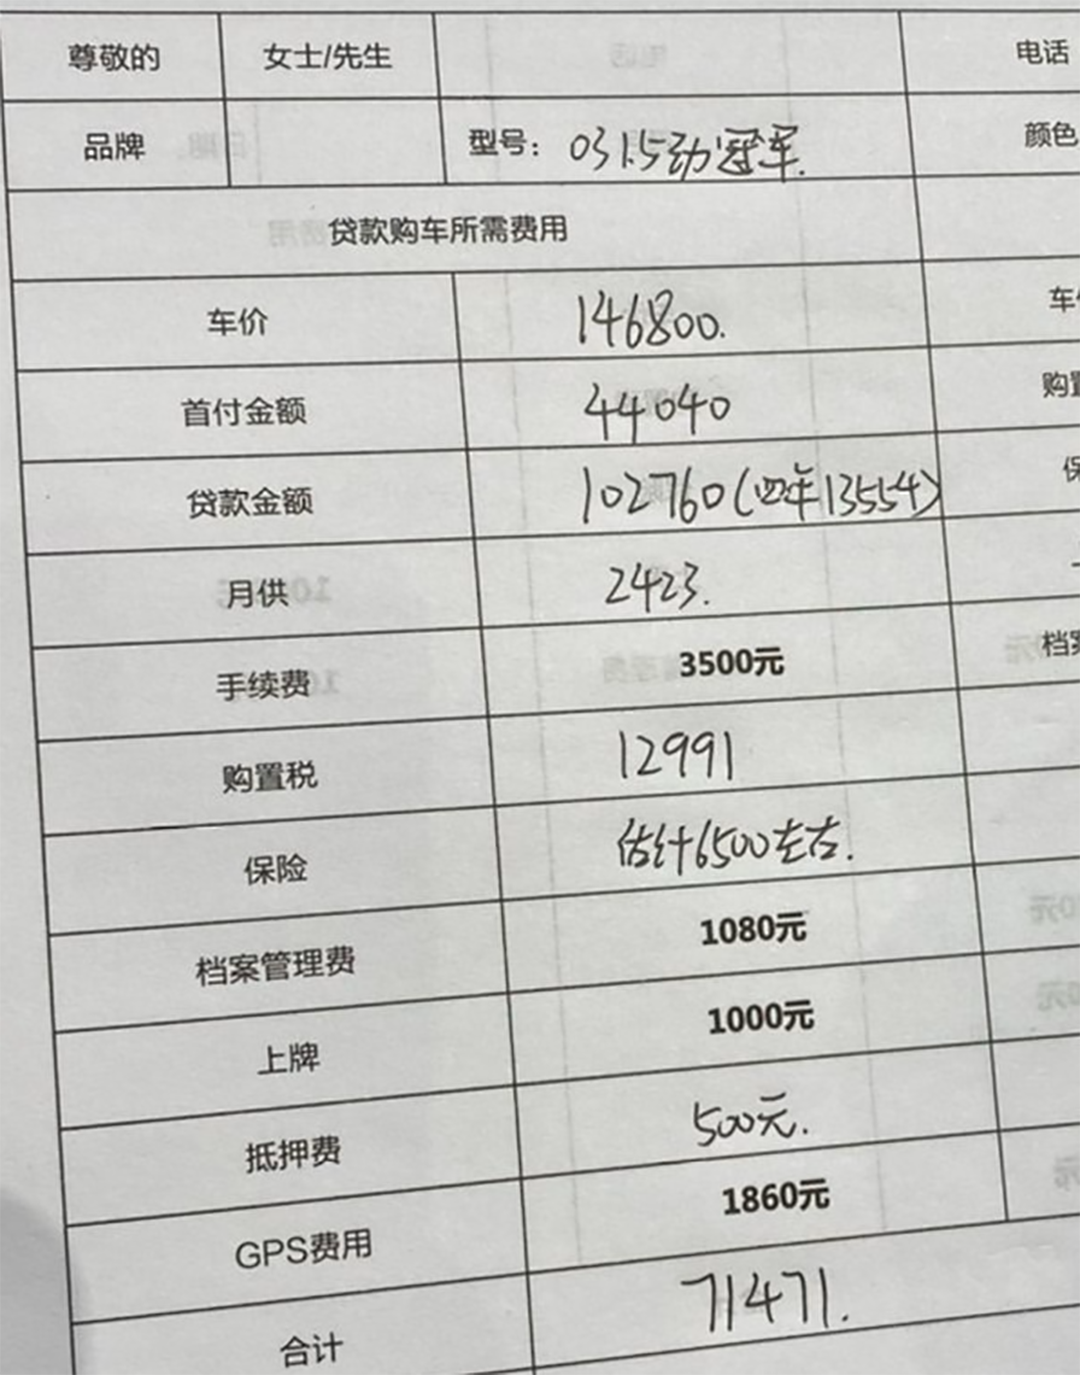 尊敬的 女士/先生 电话
品牌 型号：031.5劲冠军. 颜色
贷款购车所需费用
车价 146800.
首付金额 44040
购置
贷款金额 102760(四年13554)
保
月供 2423.
手续费 3500元 档案
购置税 12991
保险 估计6500左右.
档案管理费 1080元
上牌 1000元
抵押费 500元.
GPS费用 1860元
合计 71471.